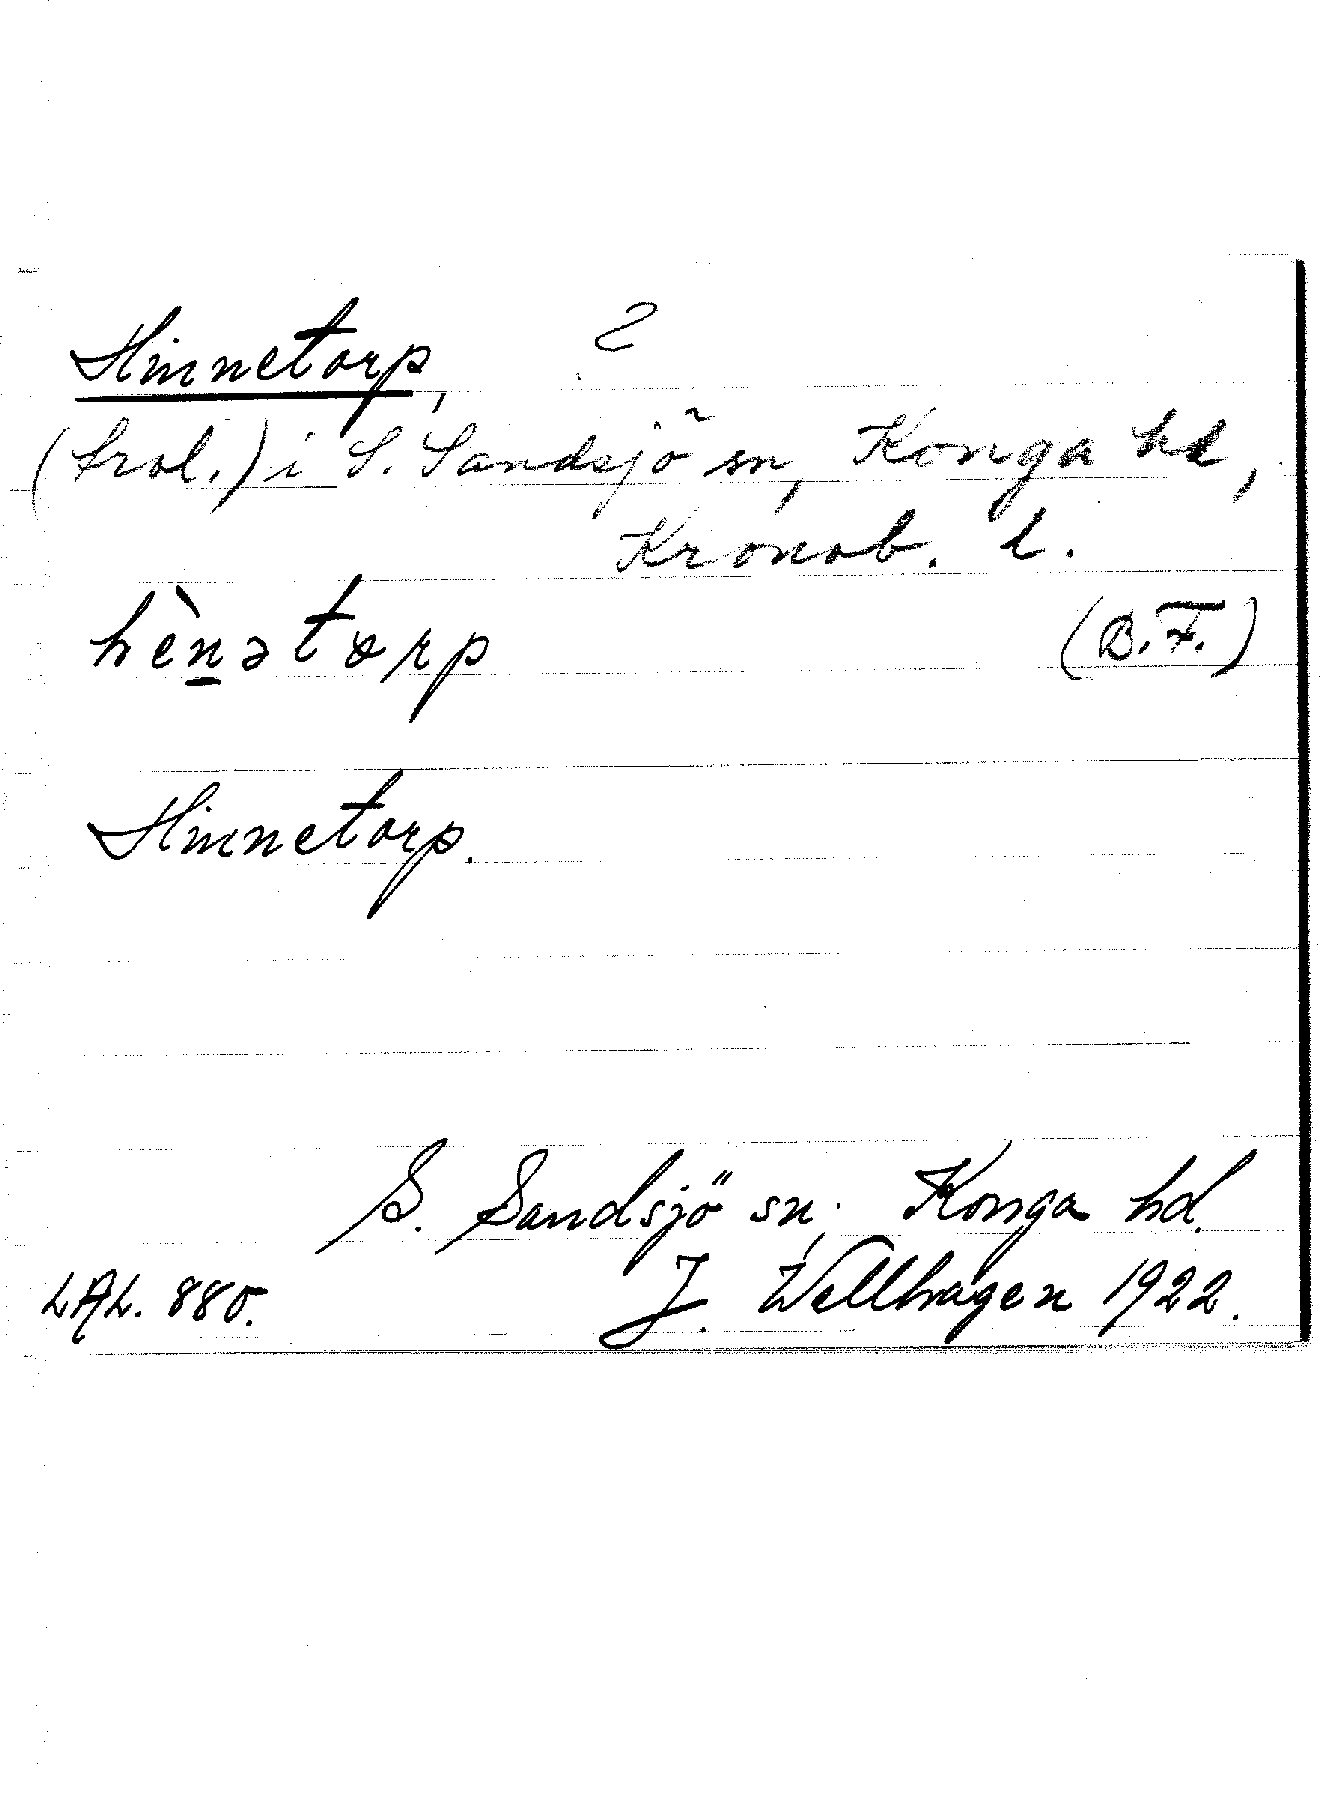 Hinnetorp, 2
(trol.) i S. Sandsjö sn, Konga hd,
Kronob. l.
hènətɷrp (B.F.)
Hinnetorp.
S. Sandsjö sn; Konga hd.
LAL. 880. J. Wellhagen 1922.